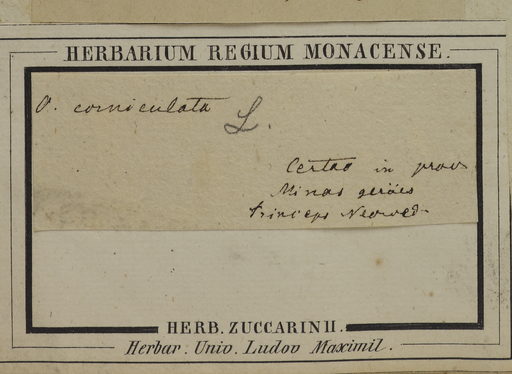 HERBARIUM REGIUM MONACENSE.
O. corniculata L.
Certao in prov
Minas geräes
princeps Neowed
HERB. ZUCCARINII.
Herbar. Univ. Ludov Maximil.